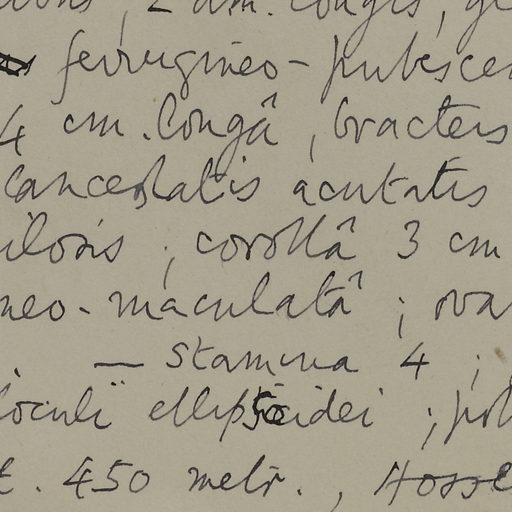 2 dm. longis,
ferrugineo-pubescen
4 cm. longâ, bracteis
lanceolatis acutatis
ilosis; corollâ 3 cm
neo-maculatâ; ova
. — Stamina 4;
loculi ellipsoidei; pol
t. 450 metr., Hosse